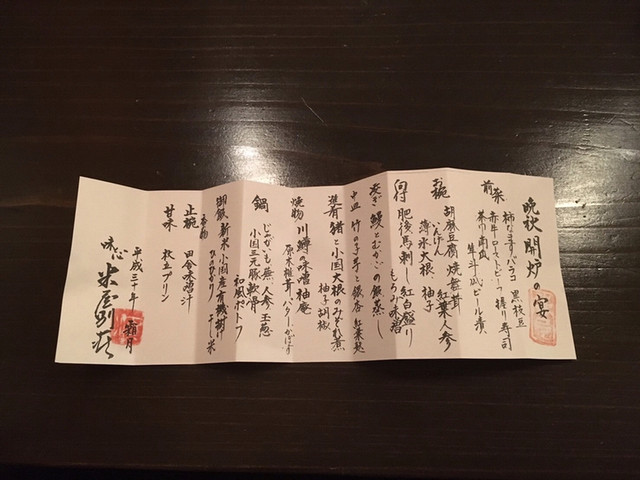 晩秋開炉の宴
前菜
柿なます イバラコ 黒枝豆
赤牛ローストビーフ 握り寿司
茶巾南瓜 隼斗瓜ビール漬
お椀
胡麻豆腐 焼舞茸 紅葉人参
いんげん 薄氷大根 柚子
向付 肥後馬刺し 紅白盛り
もろみ味噌
炊き 鰻とむかごの飯蒸し
中皿 竹の子芋と銀杏 紅葉麩
進肴 猪と小国大根のみぞれ煮
柚子胡椒
焼物 川鱒の味噌柚庵
原木椎茸 バター かぼす
鍋
じゃがいも 蕪 人参 玉葱
小国三元豚軟骨
和風ポトフ
御飯 新米 小国産有機掛け干し米
ひのひかり
香物
止椀 田舎味噌汁
甘味 牧土プリン
平成三十年 霜月
味心 米屋別荘